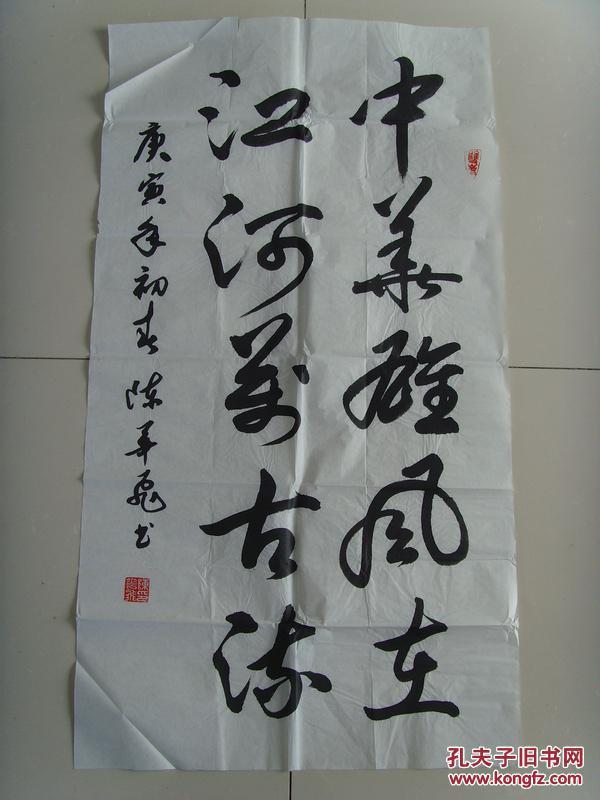 中华雄风在
江河萬古流
庚寅年初春 陈華飛书
孔夫子旧书网
www.kongfz.com